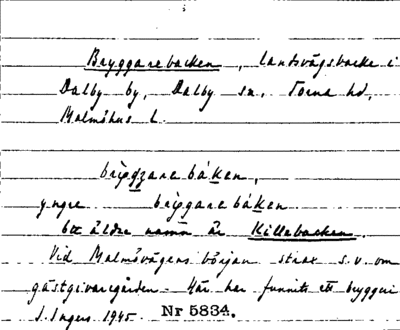 Bryggarebacken, landsvägsbacke i
Dalby by, Dalby sn, Torna hd,
Malmöhus l.
yngre
Ett äldre namn är Killebacken.
Vid Malmövägens början strax s.v. om
gästgivaregården. Här har funnits ett bryggeri
S. Ingers 1945. Nr 5834.